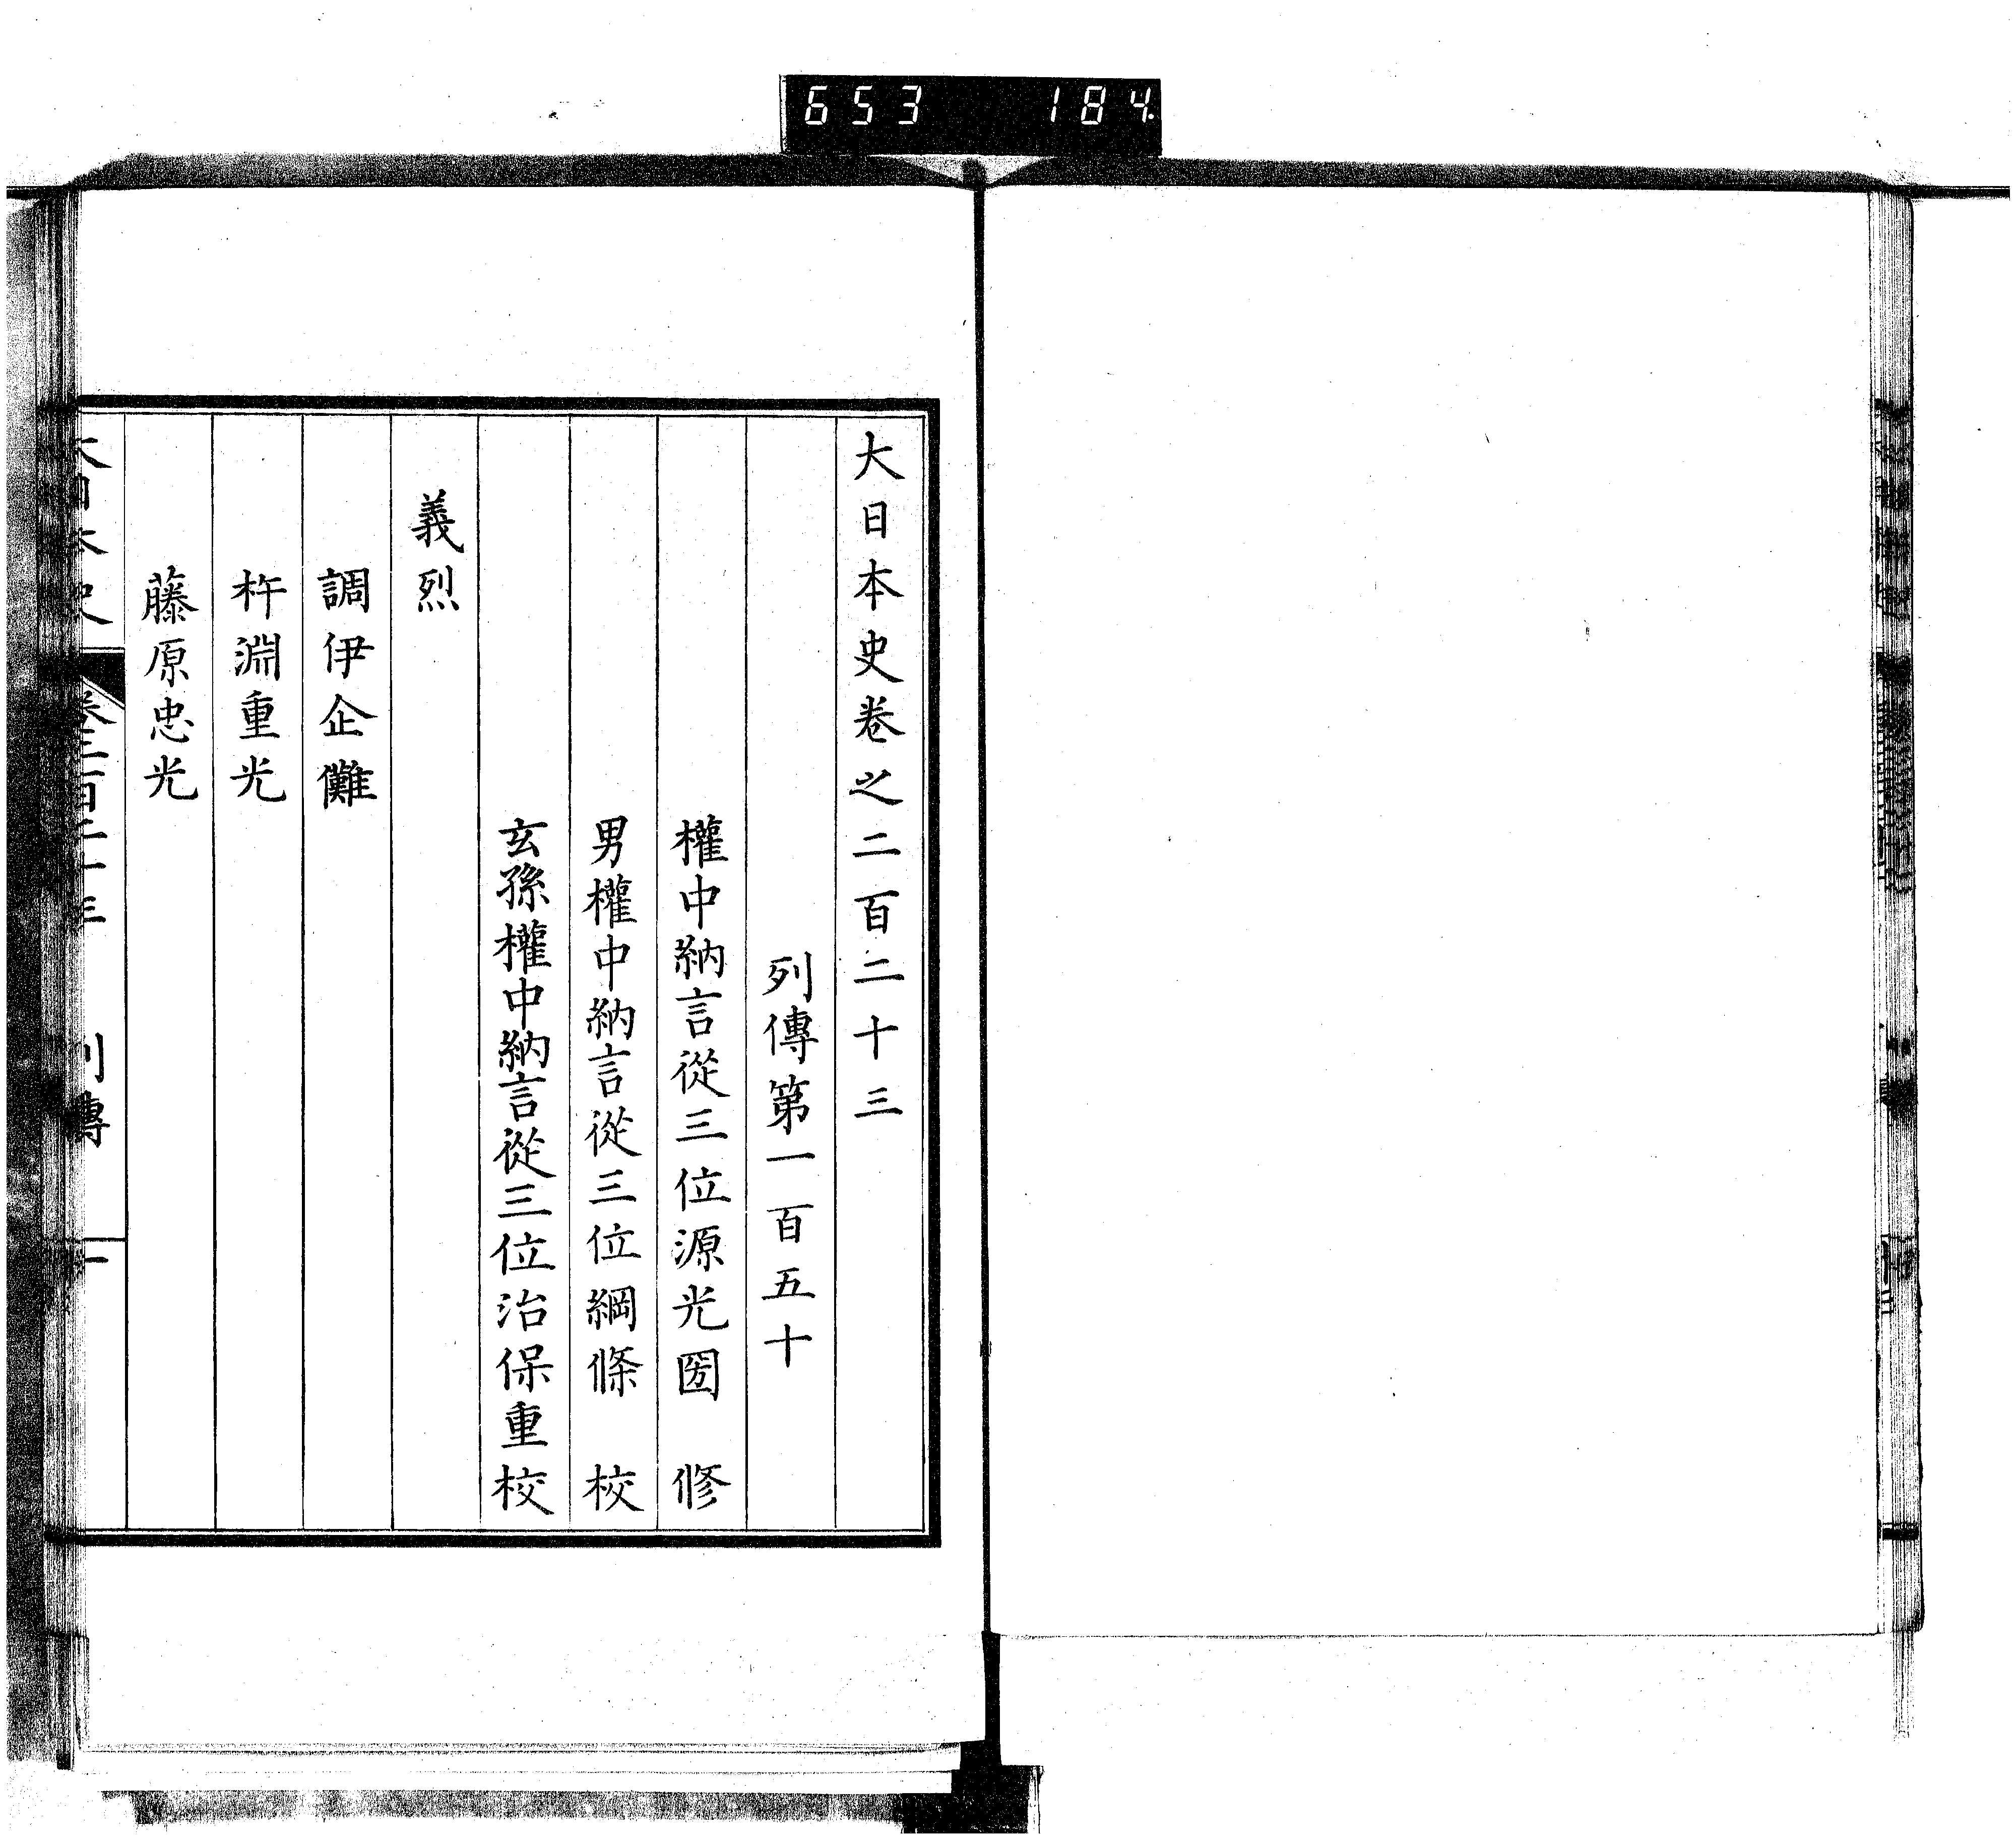 653 184.
大日本史卷之二百二十三
列傳第一百五十
權中納言從三位源光圀 修
男權中納言從三位綱條 校
玄孫權中納言從三位治保重校
義烈
調伊企儺
杵淵重光
藤原忠光
大日本史 卷二百二十三 列傳 一